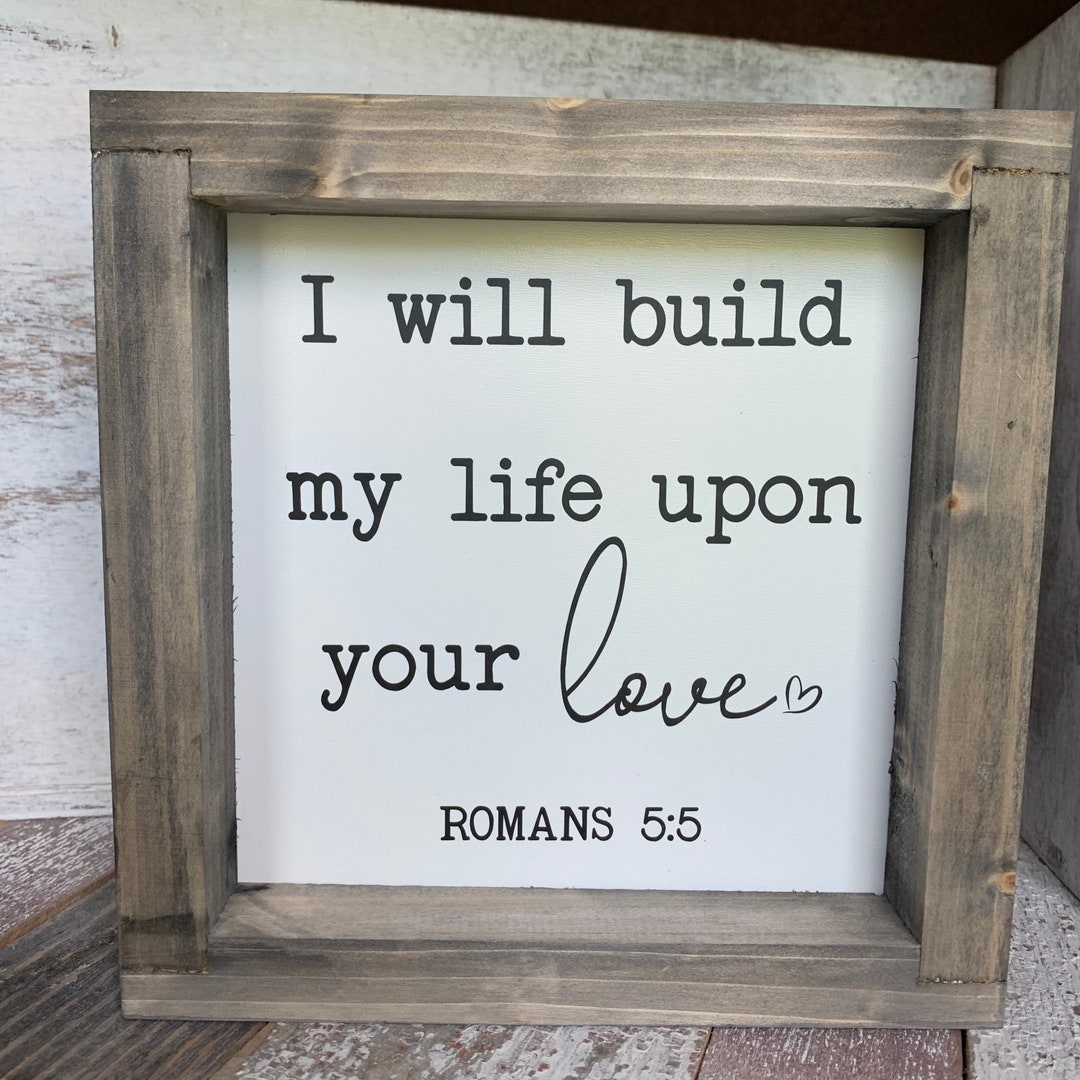 I will build
my life upon
your love
ROMANS 5:5